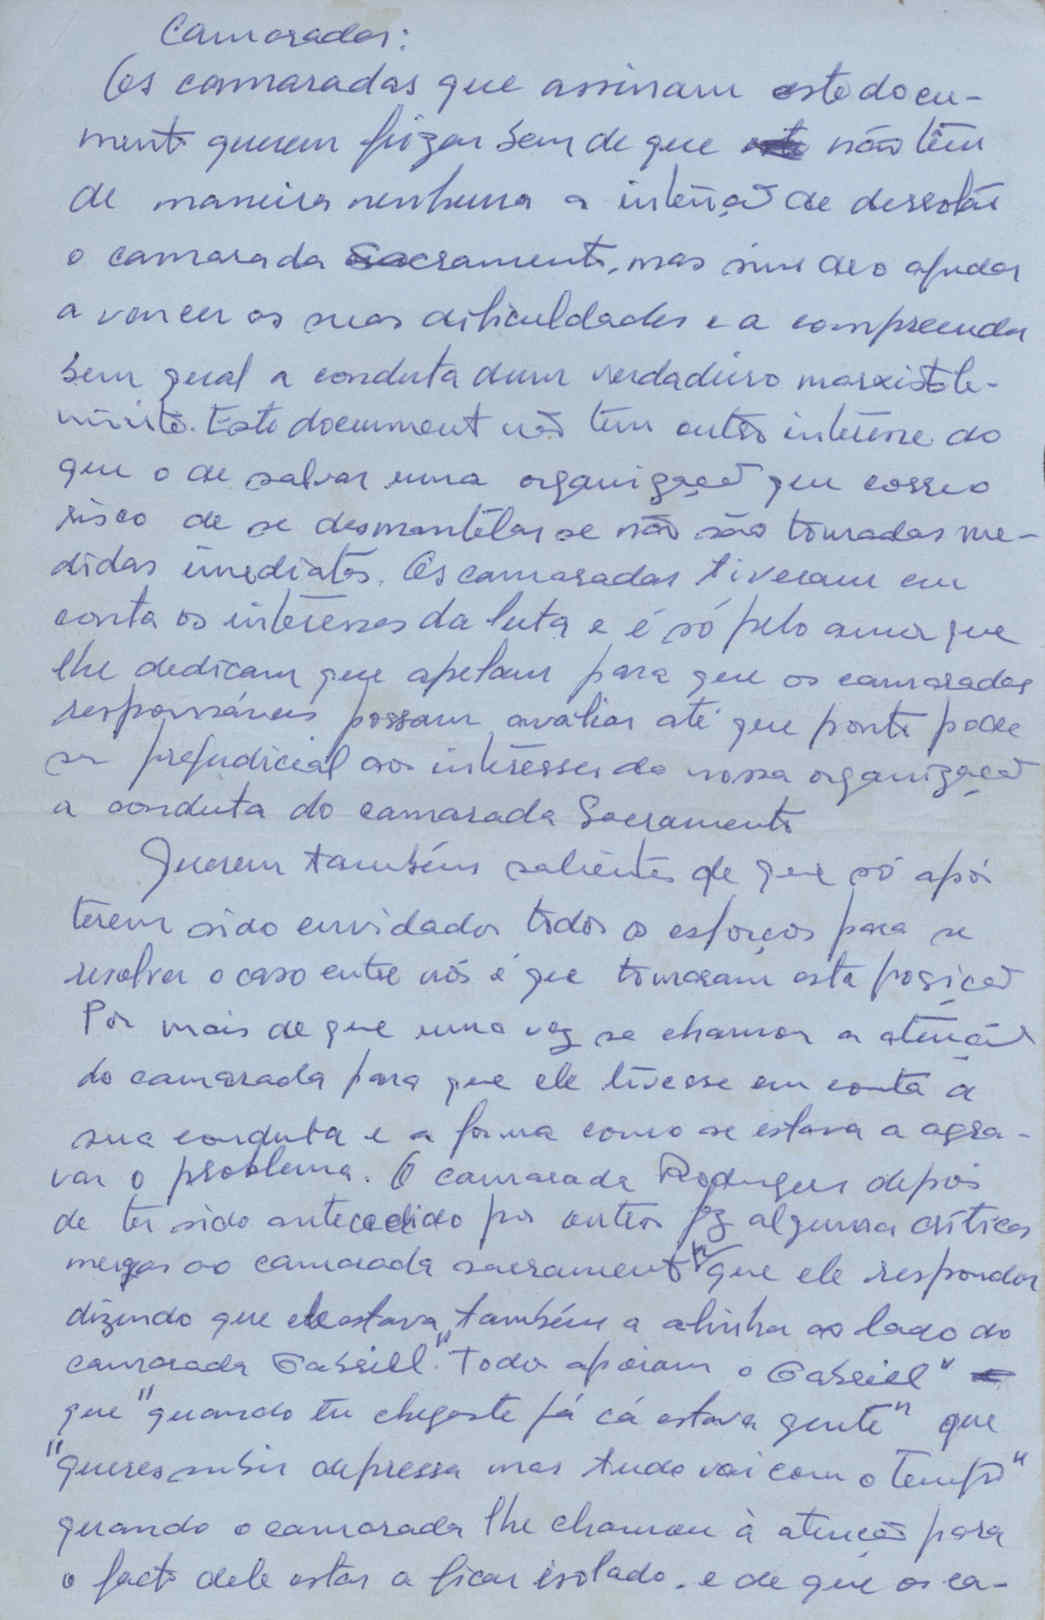 Camaradas:
Os camaradas que assinam este docu-
mento querem frizar bem de que não têm
de maneira nenhuma a intenção de
o camarada Sacramento, mas sim de o ajudar
a vencer as suas dificuldades e a compreender
bem qual a conduta dum verdadeiro marxista le-
ninista. Este documento não tem outro interêsse do
que o de salvar uma organização que corre o
risco de se desmantelar se não são tomadas me-
didas imediatas. Os camaradas tiveram em
conta os interêsses da luta e é só pelo amor que
lhe dedicam que apelam para que os camaradas
responsáveis possam avaliar até que ponto pode
ser prejudicial aos interêsses da nossa organização
a conduta do camarada Sacramento
Querem também salientar de que só após
terem sido envidados todos os esforços para se
resolver o caso entre nós é que tomaram esta posição
Por mais de que uma vez se chamou a atenção
do camarada para que ele tivesse em conta a
sua conduta e a forma como se estava a agra-
var o problema. O camarada Rodrigues depois
de ter sido antecedido por outros fez algumas críticas
ao camarada sacramento que ele respondeu
dizendo que ele estava "também a alinhar ao lado do
camarada Gabriell". "Todos apoiam o Gabriell"
que "quando tu chegaste já cá estava gente" que
"queres subir depressa mas tudo vai com o tempo"
quando o camarada lhe chamou à atenção para
o facto dele estar a ficar isolado. e de que os ca-